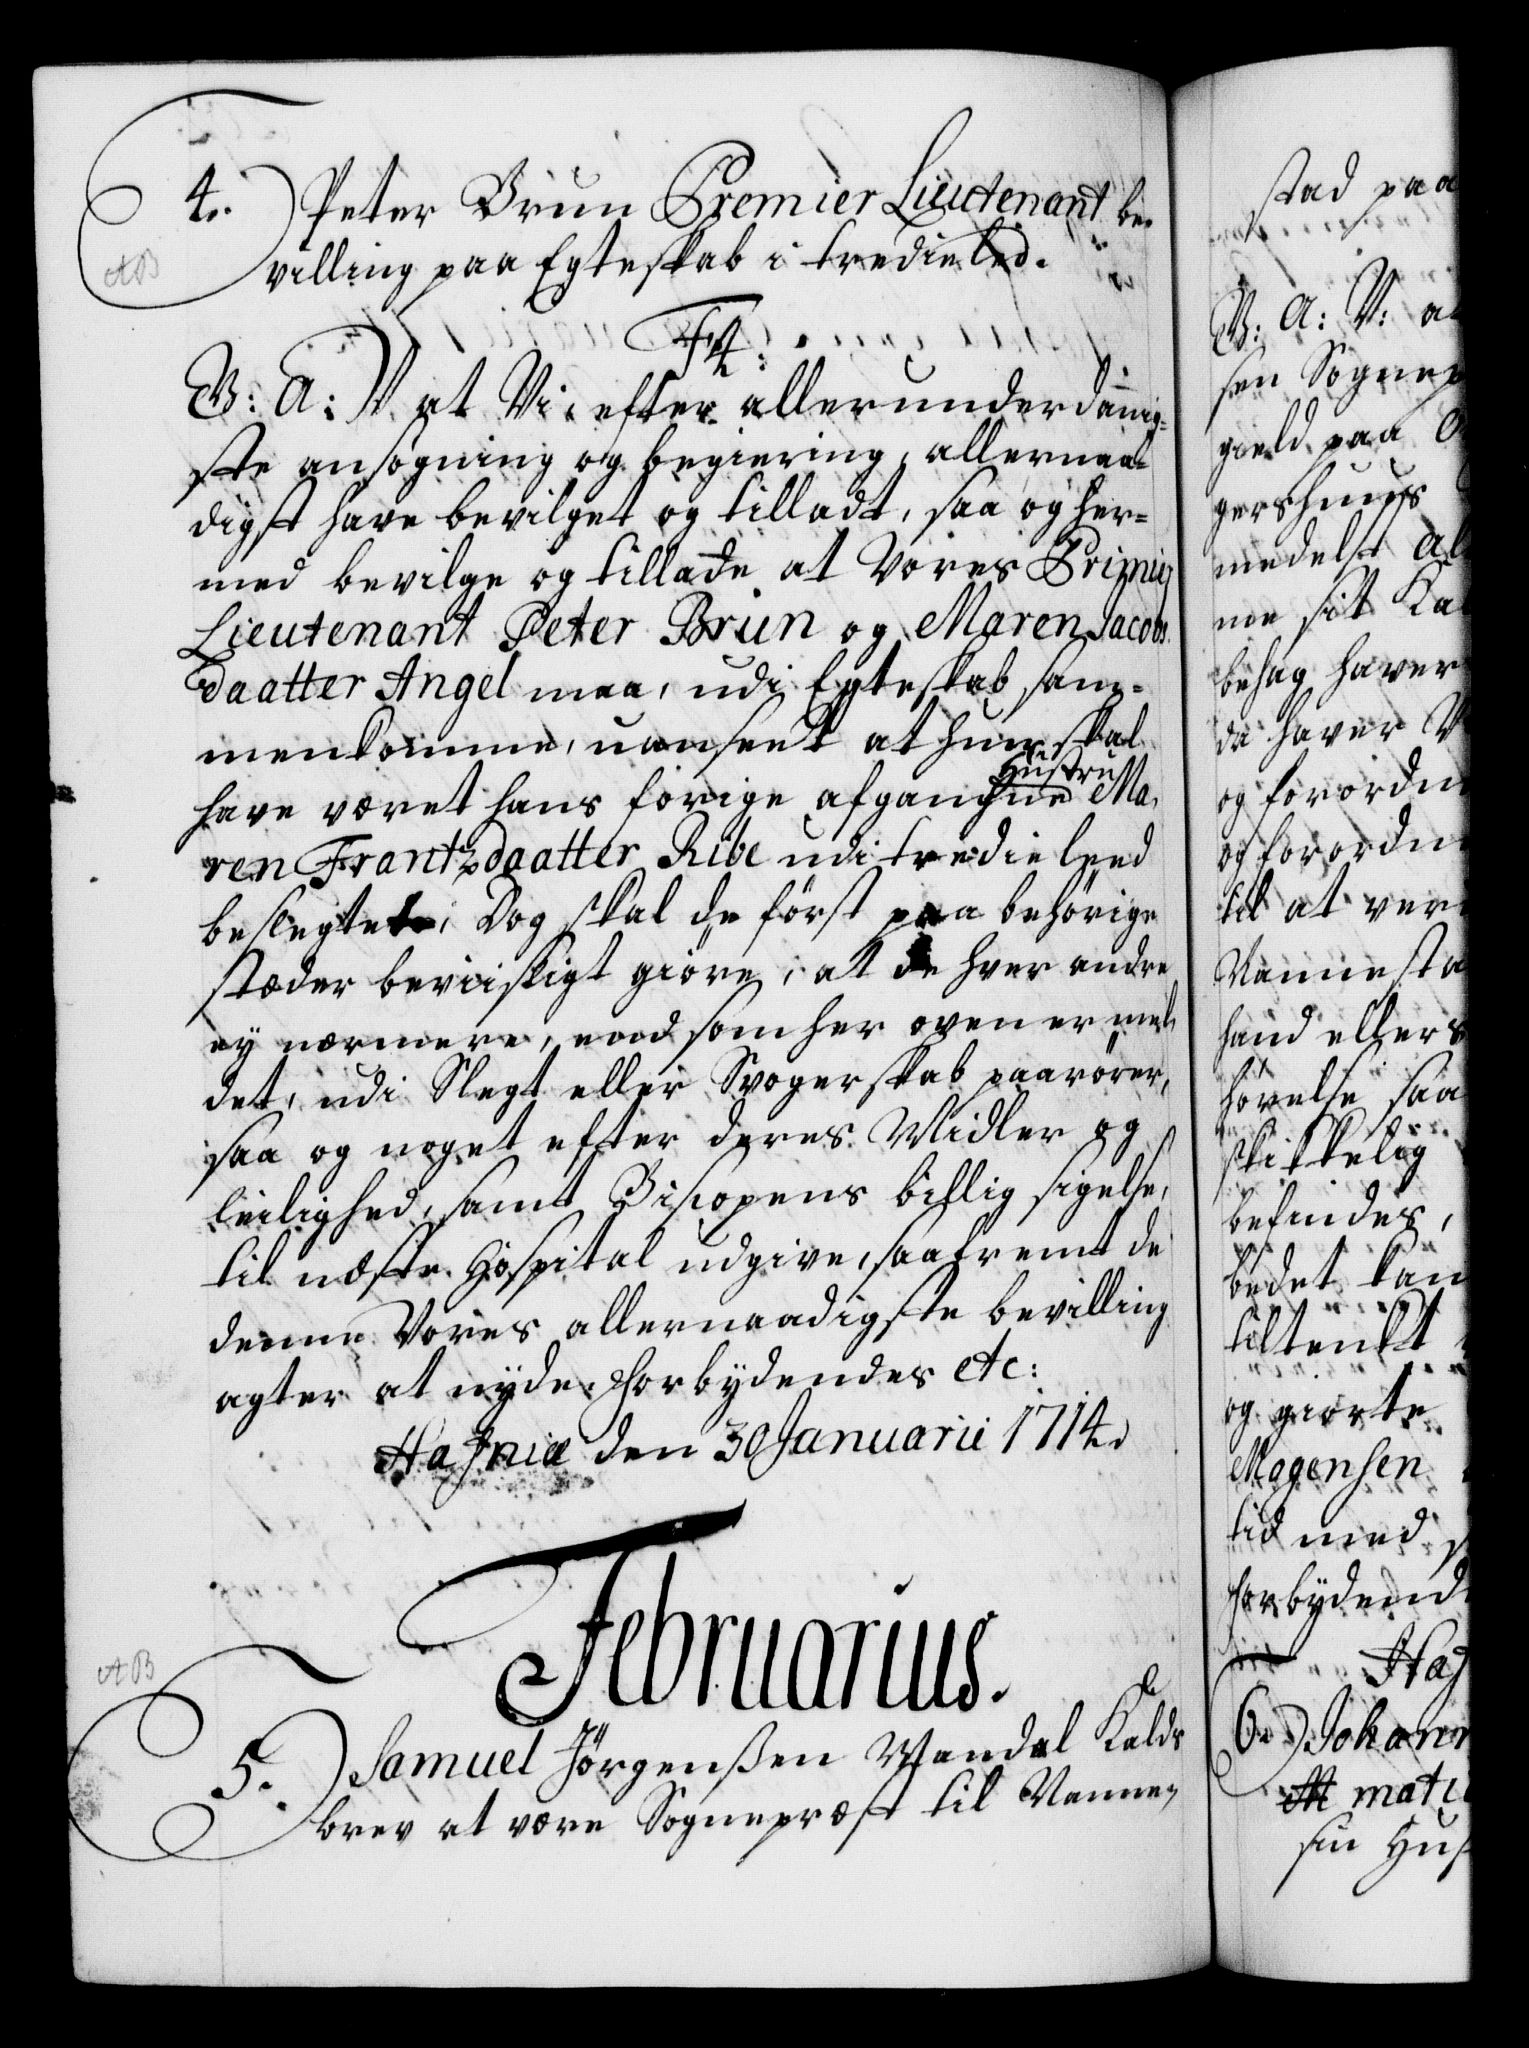 4. Peter Brun Premier Lieutenant be-
AB
villing paa Egteskab i tredie led.
F4:
V: A: V at Vi, efter allerunderdannig-
ste ansøgning og begiering, allernaa-
digst have bevilget og tilladt, saa og her-
med bevilge og tillade at Vores Primier
Lieutenant Peter Brun og Maren Jacobs
daatter Angel maa, udi Egteskab sam-
menkomme, uanseet at hun skal
Hustru
have været hans forige afgangne Ma-
ren Frantzdaatter Ribe udi tredie leed
beslegtet; Dog skal de först paa behörige
stæder beviisligt giöre, at de hver andre
ey nærmere, end som her oven er mel-
det, udi Slegt eller Svogerskab paarörer,
saa og noget efter deres Midler og
leilighed, samt Biscopens billig sigelse,
til næste Hospital udgive, saafremt de
denne Vores allernaadigste bevilling
agter at nyde. Forbydendes etc:
Hafniæ den 30 Januarii 1714.
Februarius.
AB
5. Samuel Jörgenßen Wandal Kalds
brev at være Sognepræst til Nanne-
stad paa
V: A: V: at
sen Sognep
gield paa
gershuus
medelst al
me sit Kal
behag haver
da haver V
og forordn
og forordn
til at være
Nannesta
hand ellers
hørelse saa
skikkelig
befindes,
bedet kan
tiltenkt
og giorte
Mogensen
tid med
Forbydend
Haf
6. Johann
mati
sin Hus